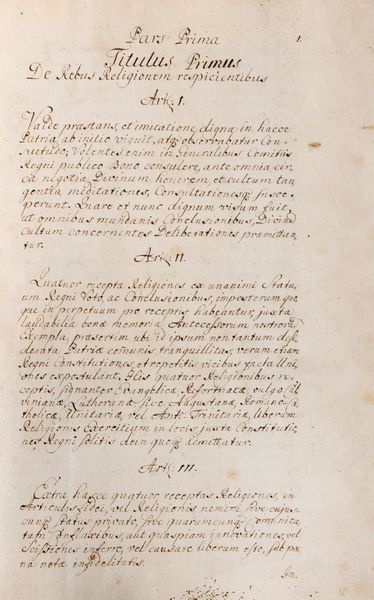 Pars Prima
1.
Titulus Primus
De Rebus Religionem respicientibus
Art: I.
Valde præstans, et imitatione digna, in hacce
Patria ab initio viguit, atq observabatur Con
svetudo; Volentes enim in Generalibus Comitiis
Regni publico Bono consulere, ante omnia cir
ca negotia Divinum honorem et cultum tan
gentia meditationes, Consultationesq susce
perunt. Quare et nunc dignum visum fuit,
ut omnibus mundanis Conclusionibus, Divinum
Cultum concernentes Deliberationes præmittan
tur.
Art: II.
Quatuor receptæ Religiones ex unanimi Statu
um Regni Voto, ac Conclusionibus, imposterum quo
que in perpetuum pro receptis habeantur, juxta
laudabilia bonæ memoriæ Antecessorum nostrorum
Exempla, præsertim ubi id ipsum non tantum
Patriæ comunis tranquillitas, verum etiam
Regni Constitutiones, et repetitis vicibus factæ Uni
ones expostulant. His quatuor Religionibus re
ceptis, signanter Evangelicæ Reformatæ, vulgo Cal
vinianæ, Lutheranæ sive Augustanæ, Romano Ca
tholicæ, Unitariæ vel Anti Trinitariæ, liberum
Religionis Exercitium in locis, juxta Constitutio
nes Regni solitis dein quoq admittatur.
Art: III.
Extra hasce quatuor receptas Religiones, in
Articulis fidei, vel Religionis nemini sive cujus
cunq status privato, sive quarumcunq Comunita
tum aut quaspiam innovationes, vel
Scissiones inferre, vel causare liberum esto, sub poe
na notæ infidelitatis.
In,